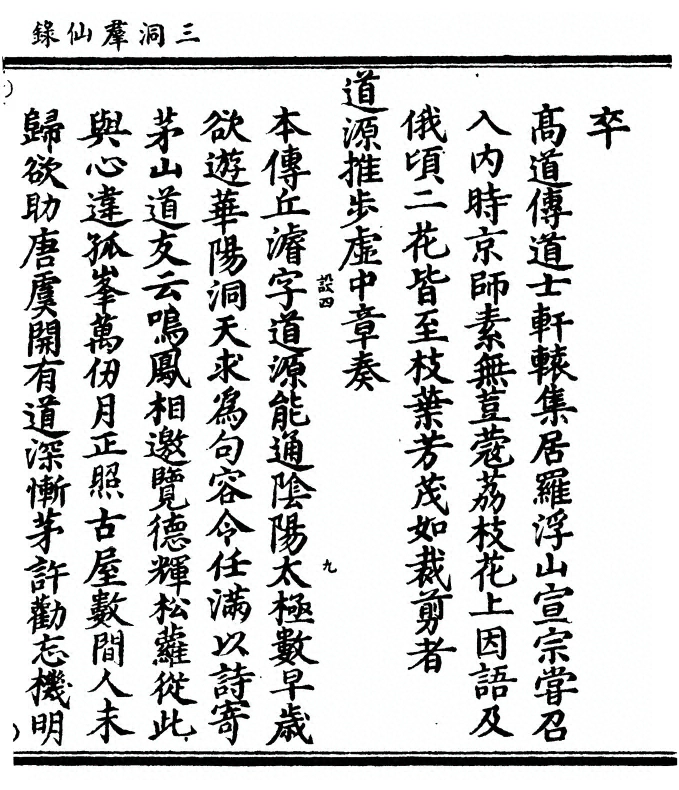 三洞羣仙錄
卒
髙道傳道士軒轅集居羅浮山宣宗甞召
入内時京師素無荳蔻荔枝花上因語及
俄頃二花皆至枝葉芳茂如裁剪者
道源推步虛中章奏
本傳丘濬字道源能通陰陽太極數早歲
設四
九
欲遊華陽洞天求爲句容令任滿以詩寄
茅山道友云鳴鳳相邀覽德輝松蘿從此
與心違孤峯萬仞月正照古屋數間人未
歸欲助唐虞開有道深慚茅許勸忘機明